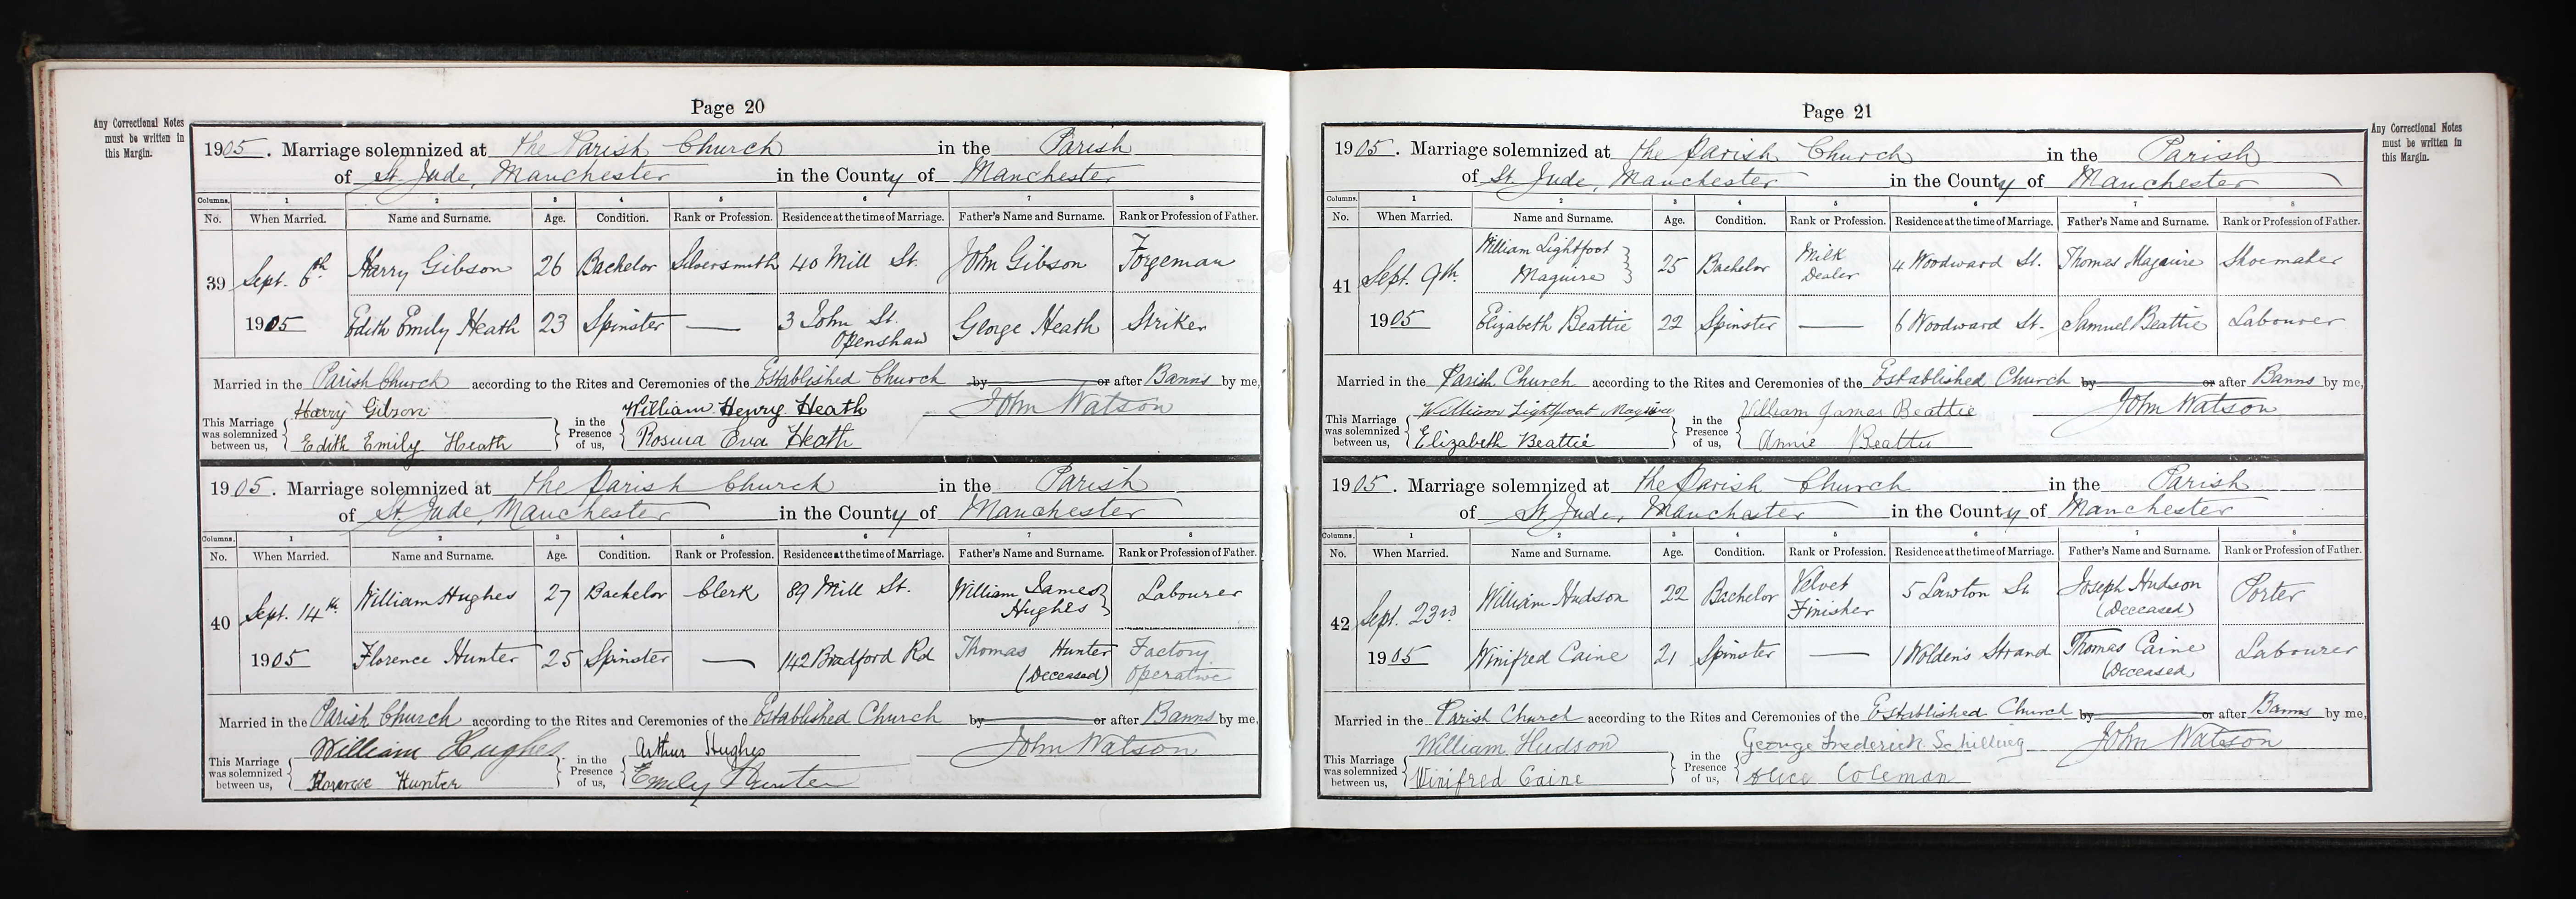 Page 20
Any Correctional Notes
must be written in
this Margin.
1905. Marriage solemnized at the Parish Church in the Parish
of St. Jude, Manchester in the County of Manchester
Columns. 1 2 3 4 5 6 7 8
No. When Married. Name and Surname. Age. Condition. Rank or Profession. Residence at the time of Marriage. Father's Name and Surname. Rank or Profession of Father.
39 Sept. 6th Harry Gibson 26 Bachelor Silversmith 40 Mill St. John Gibson Forgeman
1905 Edith Emily Heath 23 Spinster — 3 John St. Openshaw George Heath Striker
Married in the Parish Church according to the Rites and Ceremonies of the Established Church by or after Banns by me,
This Marriage was solemnized between us, Harry Gibson in the Presence of us, William Henry Heath John Watson
Edith Emily Heath Rosina Eva Heath
1905. Marriage solemnized at the Parish Church in the Parish
of St. Jude, Manchester in the County of Manchester
Columns. 1 2 3 4 5 6 7 8
No. When Married. Name and Surname. Age. Condition. Rank or Profession. Residence at the time of Marriage. Father's Name and Surname. Rank or Profession of Father.
40 Sept. 14th William Hughes 27 Bachelor Clerk 89 Mill St. William James Hughes Labourer
1905 Florence Hunter 25 Spinster — 142 Bradford Rd Thomas Hunter (Deceased) Factory Operative
Married in the Parish Church according to the Rites and Ceremonies of the Established Church by or after Banns by me,
This Marriage was solemnized between us, William Hughes in the Presence of us, Arthur Hughes John Watson
Florence Hunter Emily Hunter
Page 21
Any Correctional Notes
must be written in
this Margin.
1905. Marriage solemnized at the Parish Church in the Parish
of St. Jude, Manchester in the County of Manchester
Columns. 1 2 3 4 5 6 7 8
No. When Married. Name and Surname. Age. Condition. Rank or Profession. Residence at the time of Marriage. Father's Name and Surname. Rank or Profession of Father.
41 Sept. 9th William Lightfoot Maguire 25 Bachelor Milk Dealer 4 Woodward St. Thomas Maguire Shoemaker
1905 Elizabeth Beattie 22 Spinster — 6 Woodward St. Samuel Beattie Labourer
Married in the Parish Church according to the Rites and Ceremonies of the Established Church by or after Banns by me,
This Marriage was solemnized between us, William Lightfoot Maguire in the Presence of us, William James Beattie John Watson
Elizabeth Beattie Annie Beattie
1905. Marriage solemnized at the Parish Church in the Parish
of St. Jude, Manchester in the County of Manchester
Columns. 1 2 3 4 5 6 7 8
No. When Married. Name and Surname. Age. Condition. Rank or Profession. Residence at the time of Marriage. Father's Name and Surname. Rank or Profession of Father.
42 Sept. 23rd William Hudson 22 Bachelor Velvet Finisher 5 Lawton St. Joseph Hudson (Deceased) Porter
1905 Winifred Caine 21 Spinster — 1 Wolden's Strand Thomas Caine (Deceased) Labourer
Married in the Parish Church according to the Rites and Ceremonies of the Established Church by or after Banns by me,
This Marriage was solemnized between us, William Hudson in the Presence of us, George Frederick Schilling John Watson
Winifred Caine Alice Coleman